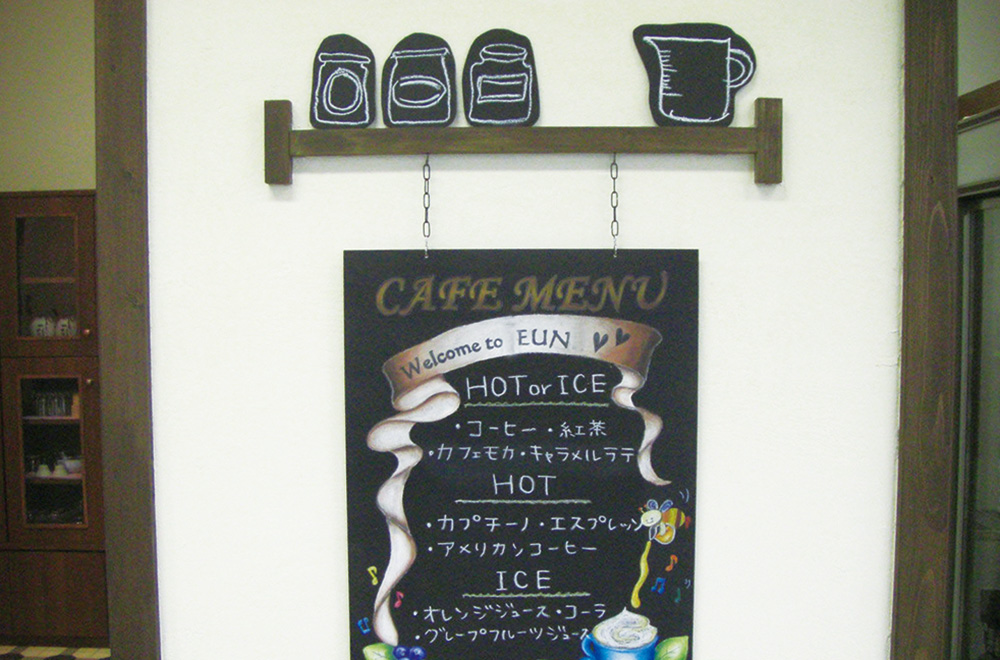 CAFE MENU
Welcome to EUN
HOT or ICE
・コーヒー・紅茶
・カフェモカ・キャラメルラテ
HOT
・カプチーノ・エスプレッソ
・アメリカンコーヒー
ICE
・オレンジジュース・コーラ
・グレープフルーツジュース